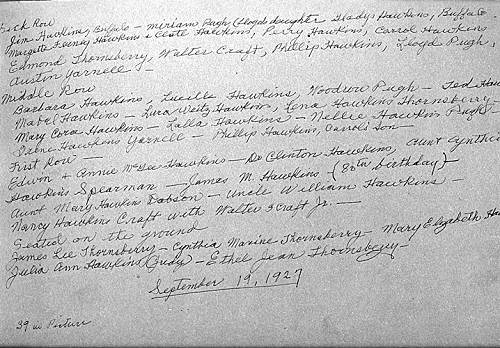 Back Row
Jim Hawkins, Buffalo - Miriam Pugh (Lloyds daughter Gladys Hawkins, Buffalo
Hawkins & Hawkins, Perry Hawkins, Carrol Hawkins
Edmond Thornsberry, Walter Craft, Phillip Hawkins, Lloyd Pugh,
Austin Yarnell -
Middle Row
Barbara Hawkins - Lucille Hawkins, Woodrow Pugh - Ted Haw
Mabel Hawkins - Lura Hawkins, Lena Hawkins Thornsberry
Mary Cora Hawkins - Zalla Hawkins - Nellie Hawkins Pugh -
Irene Hawkins Yarnell - Phillip Hawkins, Carrols Son -
First Row -
Edwn & Annie McGee Hawkins - De Clinton Hawkins, Aunt Cynthia
Hawkins Spearman - James M. Hawkins - (80th birthday) -
Aunt Mary Hawkins Dobson - Uncle William Hawkins -
Nancy Hawkins Craft with Walter Craft Jr. -
Seated on the ground
James Lee Thornsberry - Cynthia Maxine Thornsberry - Mary Elizabeth Ha
Julia Ann Hawkins (Judy) - Ethel Jean Thornsberry -
September 19, 1927
39 in Picture